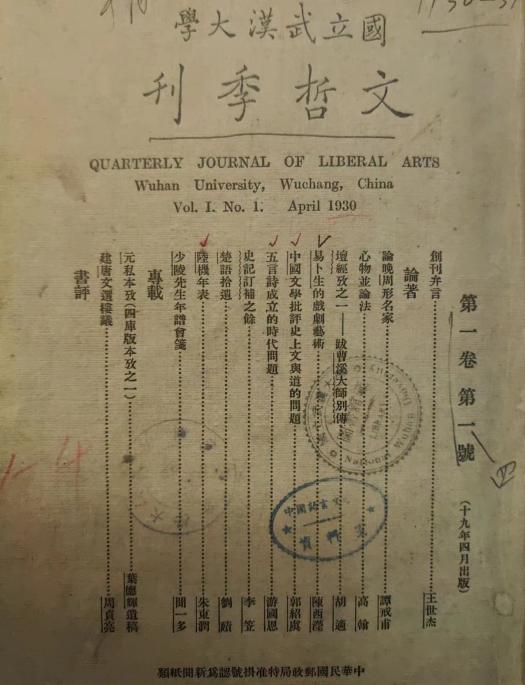 國立武漢大學
文哲季刊
QUARTERLY JOURNAL OF LIBERAL ARTS
Wuhan University, Wuchang, China
Vol. I. No. 1. April 1930
第一卷第一號
(十九年四月出版)
創刊弁言 王世杰
論著
論晚周形名家 譚戒甫
心物並論法 高翰
壇經攷之一——跋曹溪大師別傳 胡適
易卜生的戲劇藝術 陳西瀅
中國文學批評史上文與道的問題 郭紹虞
五言詩成立的時代問題 游國恩
史記訂補之餘 李笠
楚語拾遺 劉賾
陸機年表 朱東潤
少陵先生年譜會箋 聞一多
專載
元私本攷(四庫版本攷之一) 葉德輝遺稿
建唐文選樓議 周貞亮
書評
四
中國語言文
資料室
中華民國郵政局特准掛號認為新聞紙類